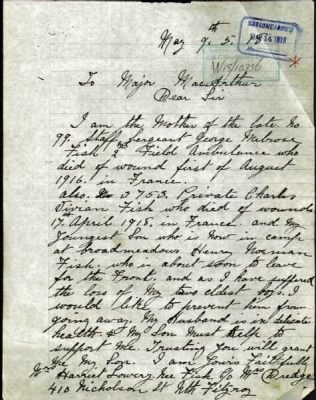 May 9th. 5. 18
BROADMEADOWS
W15/10236
To Major MacArthur
Dear Sir
I am the Mother of the late. No
99. Staff Sergeant George Melrose
Fish 2nd Field Ambulance who
died of wound first of August
1916. in France.
also. 3753. Private Charles
Vivian Fish who died of wounds
17th April 1918. in France. and My
Youngest Son who is Now in camp
at broadmeadows Henry Norman
Fish, who is about soon to leave
for the Front. and as I have suffered
the loss of My two eldest boys. I
would like to prevent him from
going away. My Husband is in delicate
health & My Son Must help to
support Me Trusting You will grant
Me My Son. I am Yours Faithfully
Mrs Harriet Lowery Nee Fish c/o Mrs Bredge
410 Nicholson St Nth Fitzroy